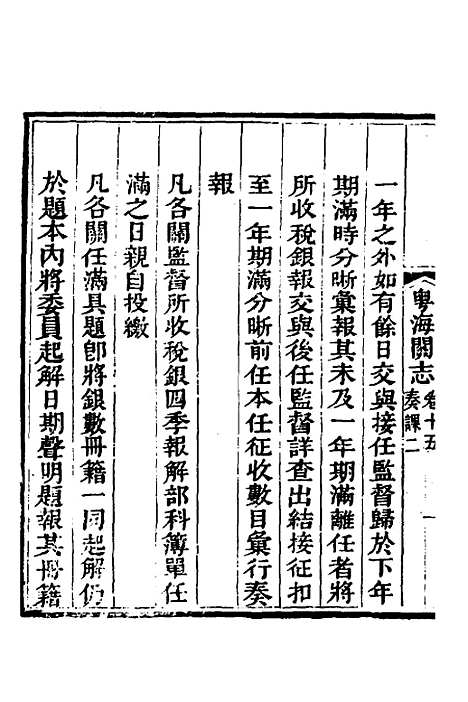 粵海關志
卷十五
奏課二
一
一年之外如有餘日交與接任監督歸於下年
期滿時分晰彙報其未及一年期滿離任者將
所收稅銀報交與後任監督詳查出結接征扣
至一年期滿分晰前任本任征收數目彙行奏
報
凡各關監督所收稅銀四季報解部科簿單任
滿之日親自投繳
凡各關任滿具題卽將銀數冊籍一同起解仍
於題本內將委員起解日期聲明題報其冊籍